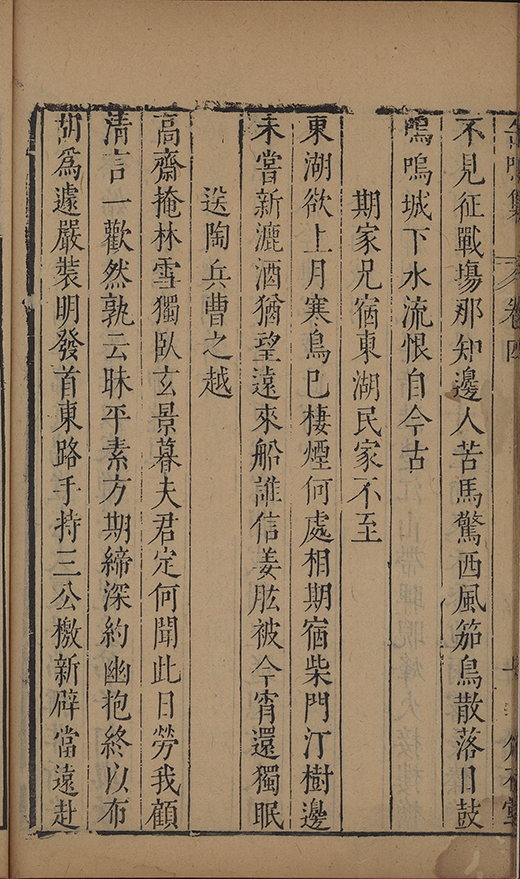 不見征戰塲那知邊人苦馬驚西風笳鳥散落日鼓
嗚嗚城下水流恨自今古
期家兄宿東湖民家不至
東湖欲上月寒鳥巳棲煙何處相期宿柴門汀樹邊
未嘗新漉酒猶望遠來船誰信姜肱被今宵還獨眠
送陶兵曹之越
高齋掩林雪獨臥玄景暮夫君定何聞此日勞我顧
清言一歡然孰云昧平素方期締深約幽抱終以布
胡爲遽嚴裝明發首東路手持三公檄新辟當遠赴